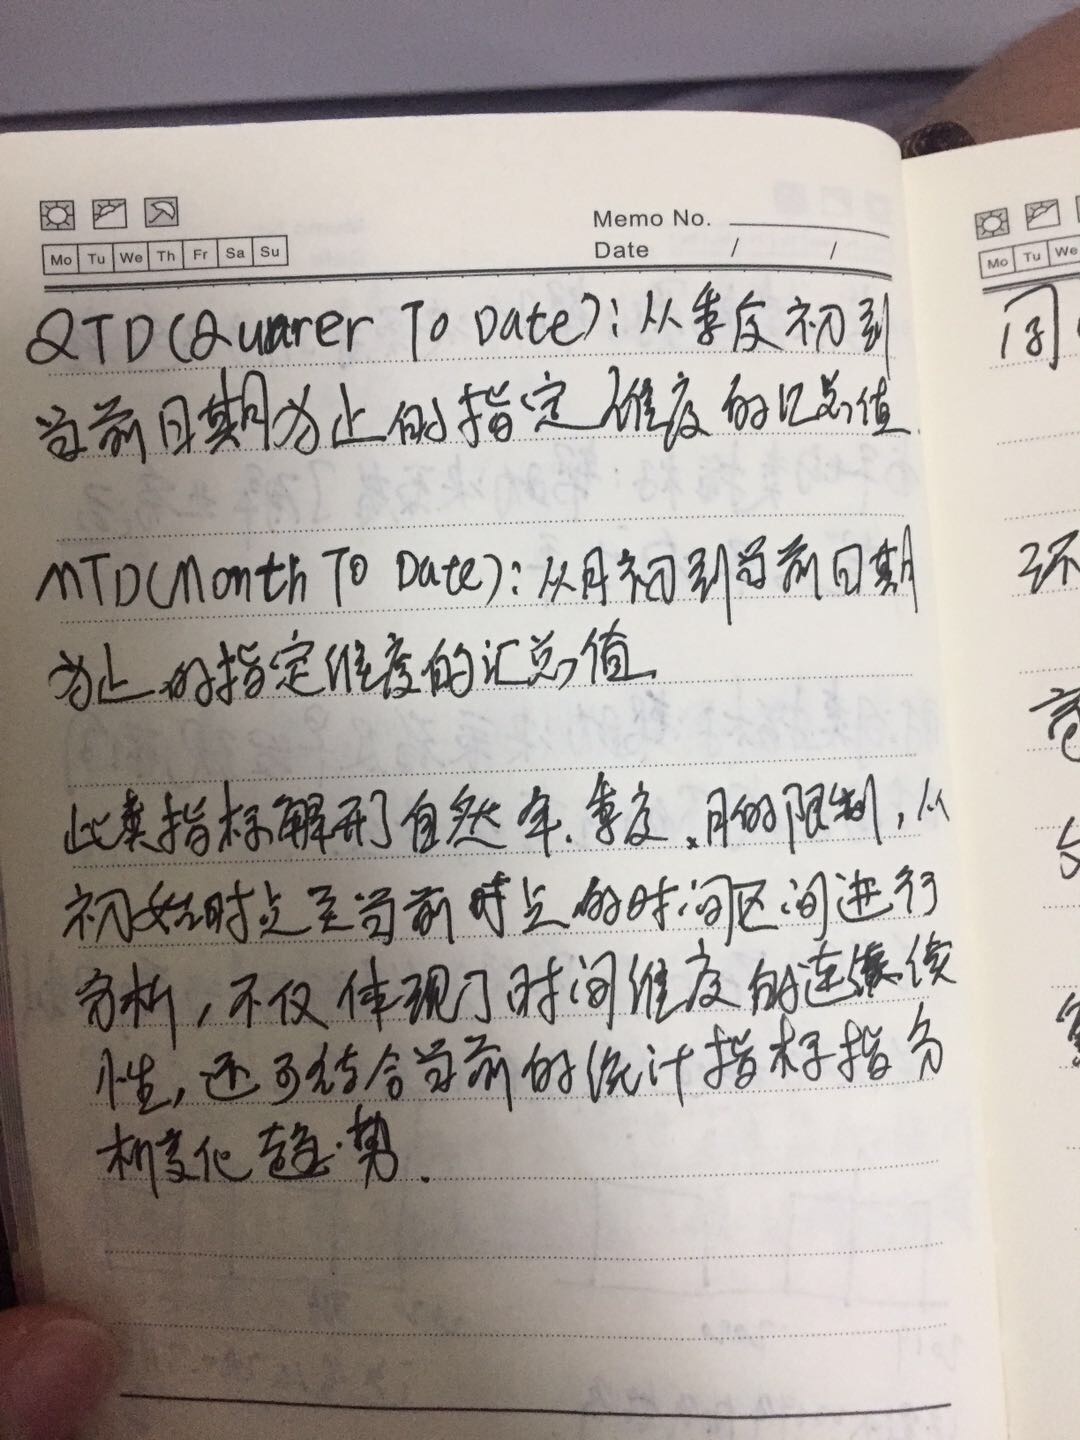 Memo No.
Mo Tu We Th Fr Sa Su
Date / /
QTD(Quarer To Date):从季度初到
当前日期为止的指定维度的汇总值.
MTD(Month To Date):从月初到当前日期
为止的指定维度的汇总值.
此类指标解开了自然年、季度、月的限制,从
初始时点至当前时点的时间区间进行
分析,不仅体现了时间维度的连续
性,还可结合当前的统计指标指分
析变化趋势.
Mo Tu We
同
环